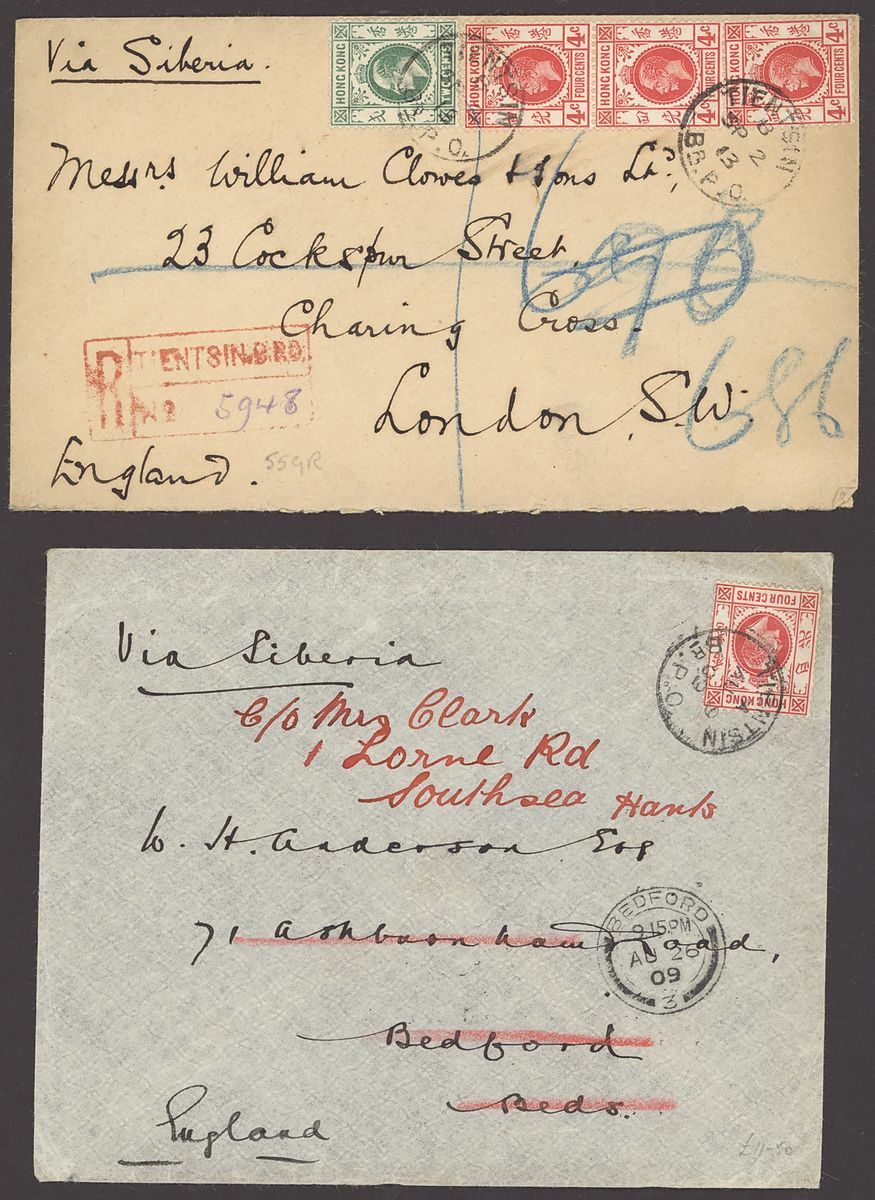 Via Siberia.
HONG KONG 香港 TWO CENTS
HONG KONG 香港 4c FOUR CENTS
HONG KONG 香港 4c FOUR CENTS
HONG KONG 香港 4c FOUR CENTS
TIENTSIN
BR. P. O.
TIENTSIN
B
2
SP
13
BR. P. O.
Messrs. William Clowes & Sons Ld.,
23 Cockspur Street,
Charing Cross.
London, S.W.
England.
R TIENTSIN.B.P.O.
No 5948
686
559R
HONG KONG FOUR CENTS
TIENTSIN
A
BR. P. O.
Via Siberia
C/o Mrs Clark
1 Lorne Rd
Southsea Hants
W. H. Anderson Esq
71 Ashburnham Road,
Bedford
Beds.
England
BEDFORD
9.15PM
AU 26
09
3
£11-50